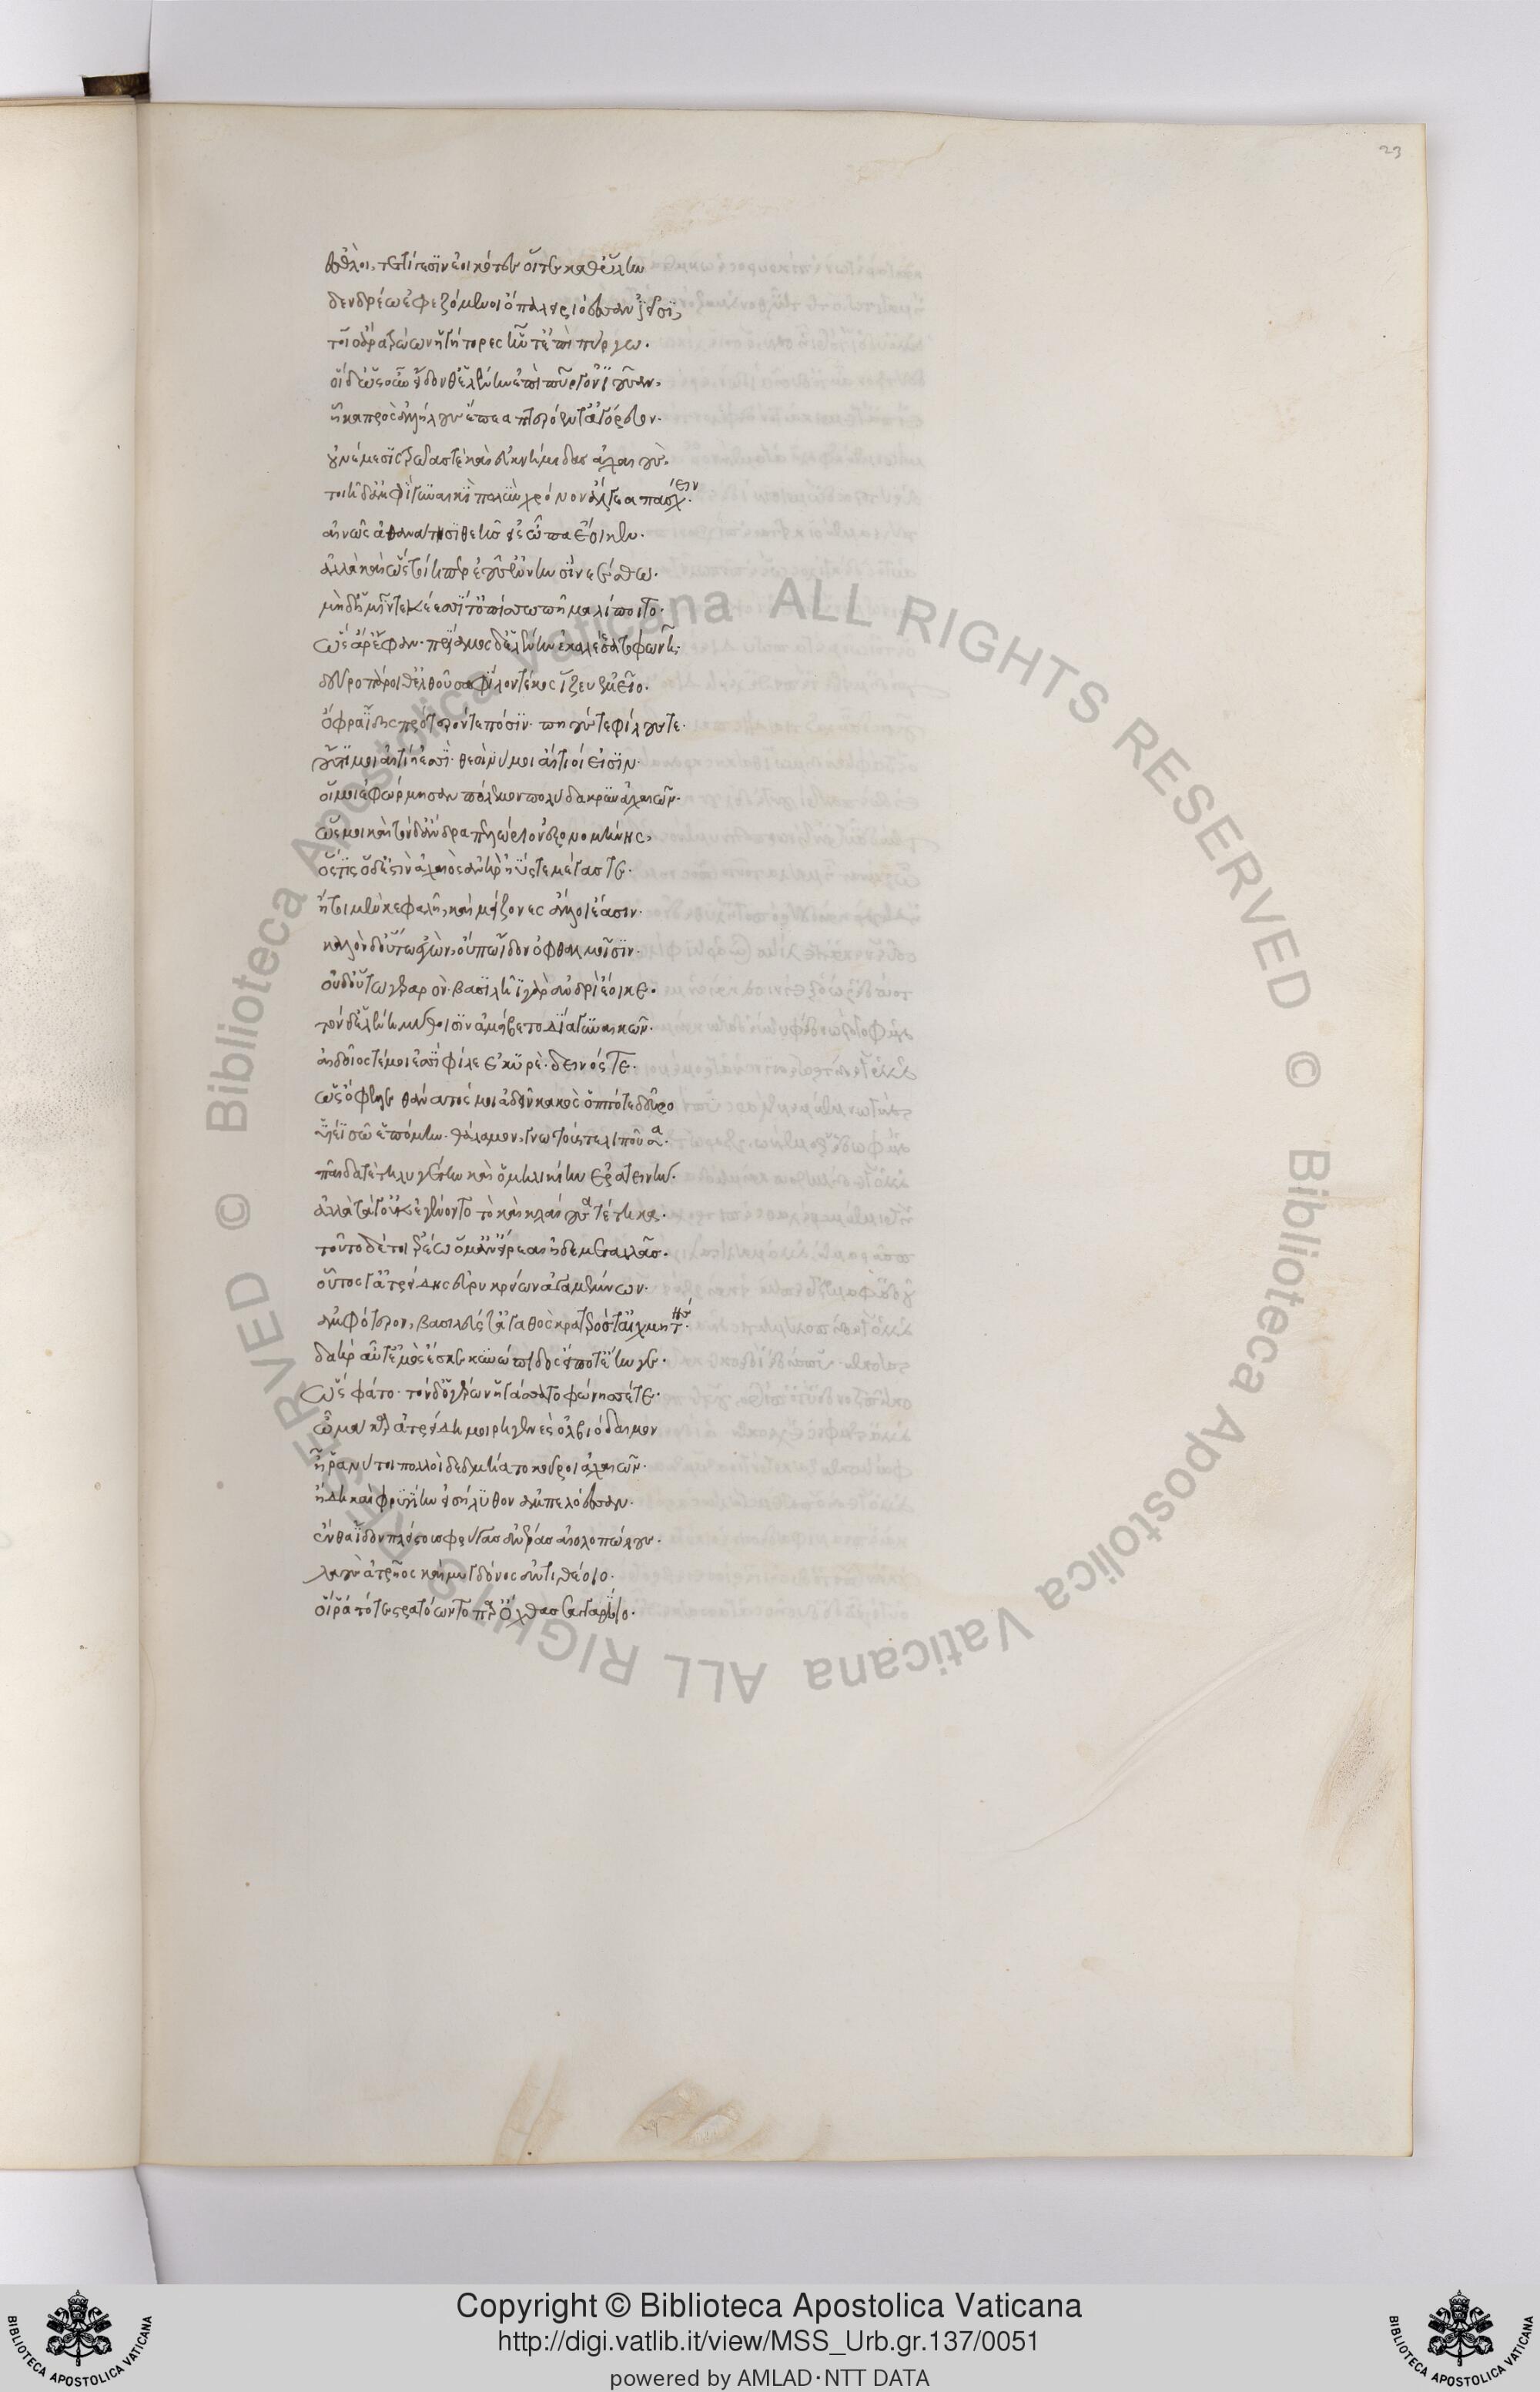 23
ἐσθλοι, τεττίγεσιν ἐοικότες οἵτε καθ' ὕλην
δενδρέω ἐφεζόμενοι ὄπα λειριόεσσαν ἱεῖσι,
τοῖοι ἄρα τρώων ἡγήτορες ἧντ' ἐπὶ πύργω.
οἵ δ' ὡς οὖν εἶδον θ' ἑλένην ἐπὶ πύργον ἰοῦσαν,
ἦκα πρὸς ἀλλήλους ἔπεα πτερόεντ' ἀγόρευον.
οὐ νέμεσις τρῶας τὲ καὶ ἐυκνήμιδας ἀχαιοὺς
τοιῆδ' ἀμφὶ γυναικὶ πολὺν χρόνον ἄλγεα πάσχειν.
αἰνῶς ἀθανάτησι θεῆς εἰς ὦπα ἔοικεν.
ἀλλὰ καὶ ὧς τοίη περ ἐοῦσ' ἐν νηυσὶ νεέσθω.
μὴ δ' ἡμῖν τεκέεσσί τ' ὀπίσσω πῆμα λίποιτο.
ὧς ἄρ' ἔφαν. πρίαμος δ' ἑλένην ἐκαλέσσατο φωνῆ.
δεῦρο πάροιθ' ἐλθοῦσα φίλον τέκος ἵζευ ἐμεῖο.
ὄφρα ἴδης πρότερόν τε πόσιν. πηούς τε φίλους τε.
οὔτι μοι αἰτίη ἐσσί. θεοί νύ μοι αἴτιοί εἰσιν.
οἵ μοι ἐφώρμησαν πόλεμον πολύδακρυν ἀχαιῶν.
ὥς μοι καὶ τόνδ' ἄνδρα πελώριον ἐξονομήνης,
ὅς τις ὅδ' ἐστὶν ἀχαιὸς ἀνὴρ ἠύς τε μέγας τε.
ἤτοι μὲν κεφαλῆ, καὶ μείζονες ἄλλοι ἔασιν.
καλὸν δ' οὕτω ἐγὼν, οὔπω ἴδον ὀφθαλμοῖσιν.
οὐδ' οὕτω γεραρὸν. βασιλῆϊ γὰρ ἀνδρὶ ἔοικε.
τὸν δ' ἑλένη μύθοισιν ἀμείβετο δῖα γυναικῶν.
αἰδοῖος τέ μοι ἐσσὶ φίλε ἑκυρὲ. δεινός τε.
ὡς ὄφελεν θάνατός μοι ἁδεῖν κακὸς ὁππότε δεῦρο
υἱέϊ σῶ ἑπόμην. θάλαμον, γνωτούς τε λιποῦσα.
παῖδα τὲ τηλυγέτην καὶ ὁμηλικίην ἐρατεινὴν.
ἀλλὰ τά γ' οὐκ ἐγένοντο τὸ καὶ κλαίουσα τέτηκα.
τοῦτο δέ τοι ἐρέω ὅ μ' ἀνείρεαι ἠδὲ μεταλλᾶς.
οὗτος γ' ἀτρείδης εὐρυκρείων ἀγαμέμνων.
ἀμφότερον, βασιλεύς τ' ἀγαθὸς κρατερός τ' αἰχμητής.
δαὴρ αὖτ' ἐμὸς ἔσκε κυνώπιδος εἴποτ' ἔην γε.
ὧς φάτο. τὸν δ' ὁ γέρων ἠγάσσατο φώνησέν τε.
ὦ μάκαρ ἀτρείδη μοιρηγενὲς ὀλβιόδαιμον
ἦ ῥά νύ τοι πολλοὶ δεδμήατο κοῦροι ἀχαιῶν.
ἤδη καὶ φρυγίην εἰσήλυθον ἀμπελόεσσαν.
ἔνθα ἴδον πλείστους φρύγας ἀνέρας αἰολοπώλους.
λαοὺς ἀτρῆος καὶ μυγδόνος ἀντιθέοιο.
οἵ ῥα τότ' ἐστρατόωντο παρ' ὄχθας σαγγαρίοιο.
Copyright © Biblioteca Apostolica Vaticana
http://digi.vatlib.it/view/MSS_Urb.gr.137/0051
powered by AMLAD·NTT DATA